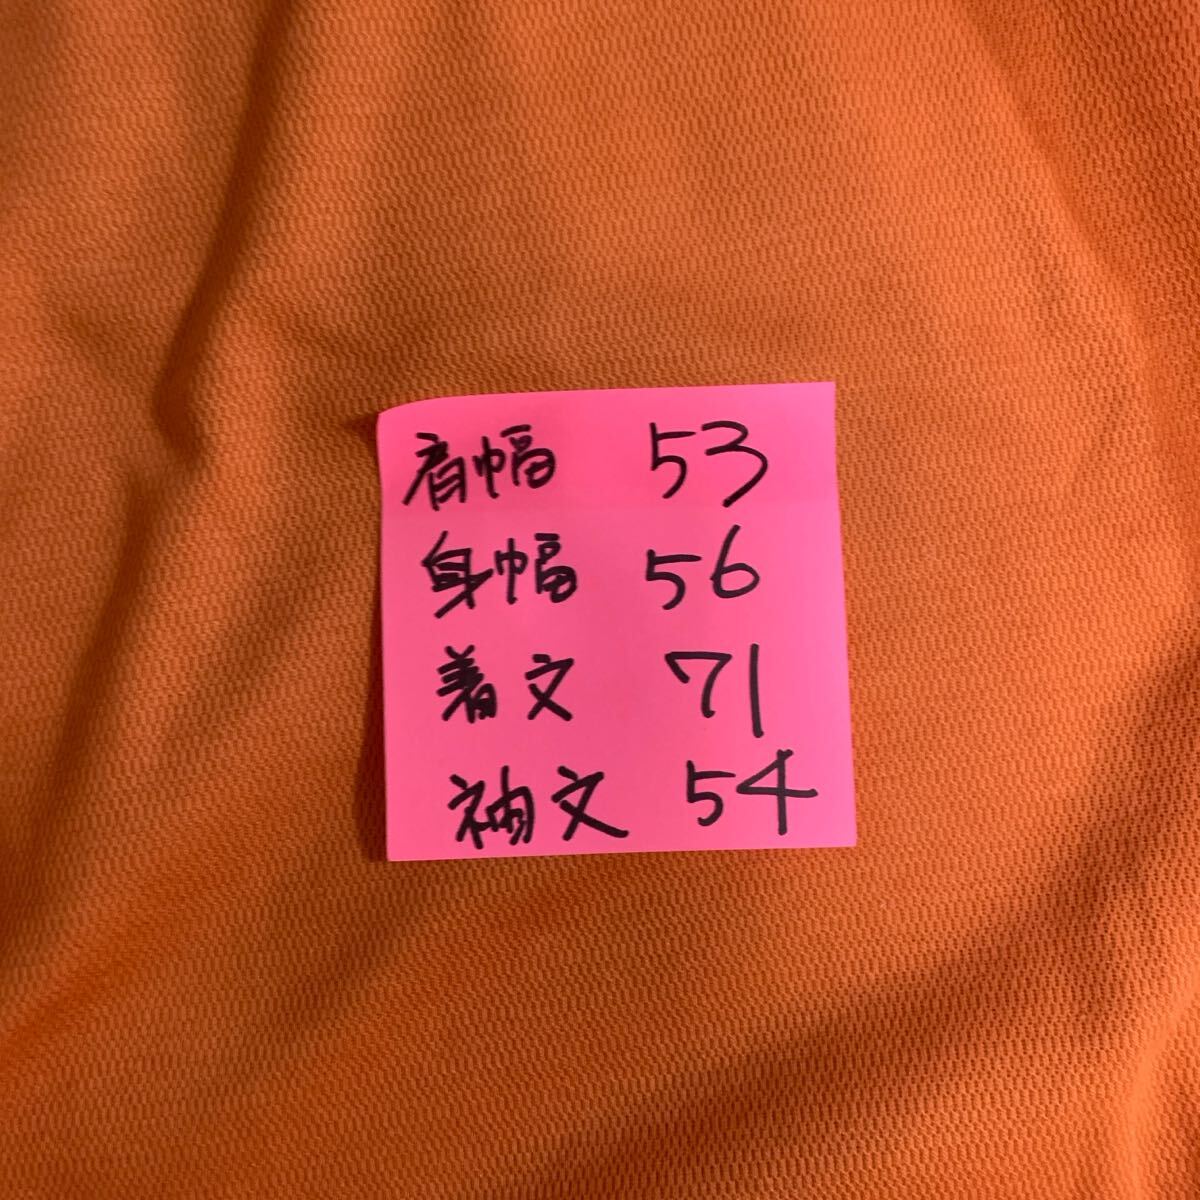 肩幅 53
身幅 56
着文 71
袖文 54